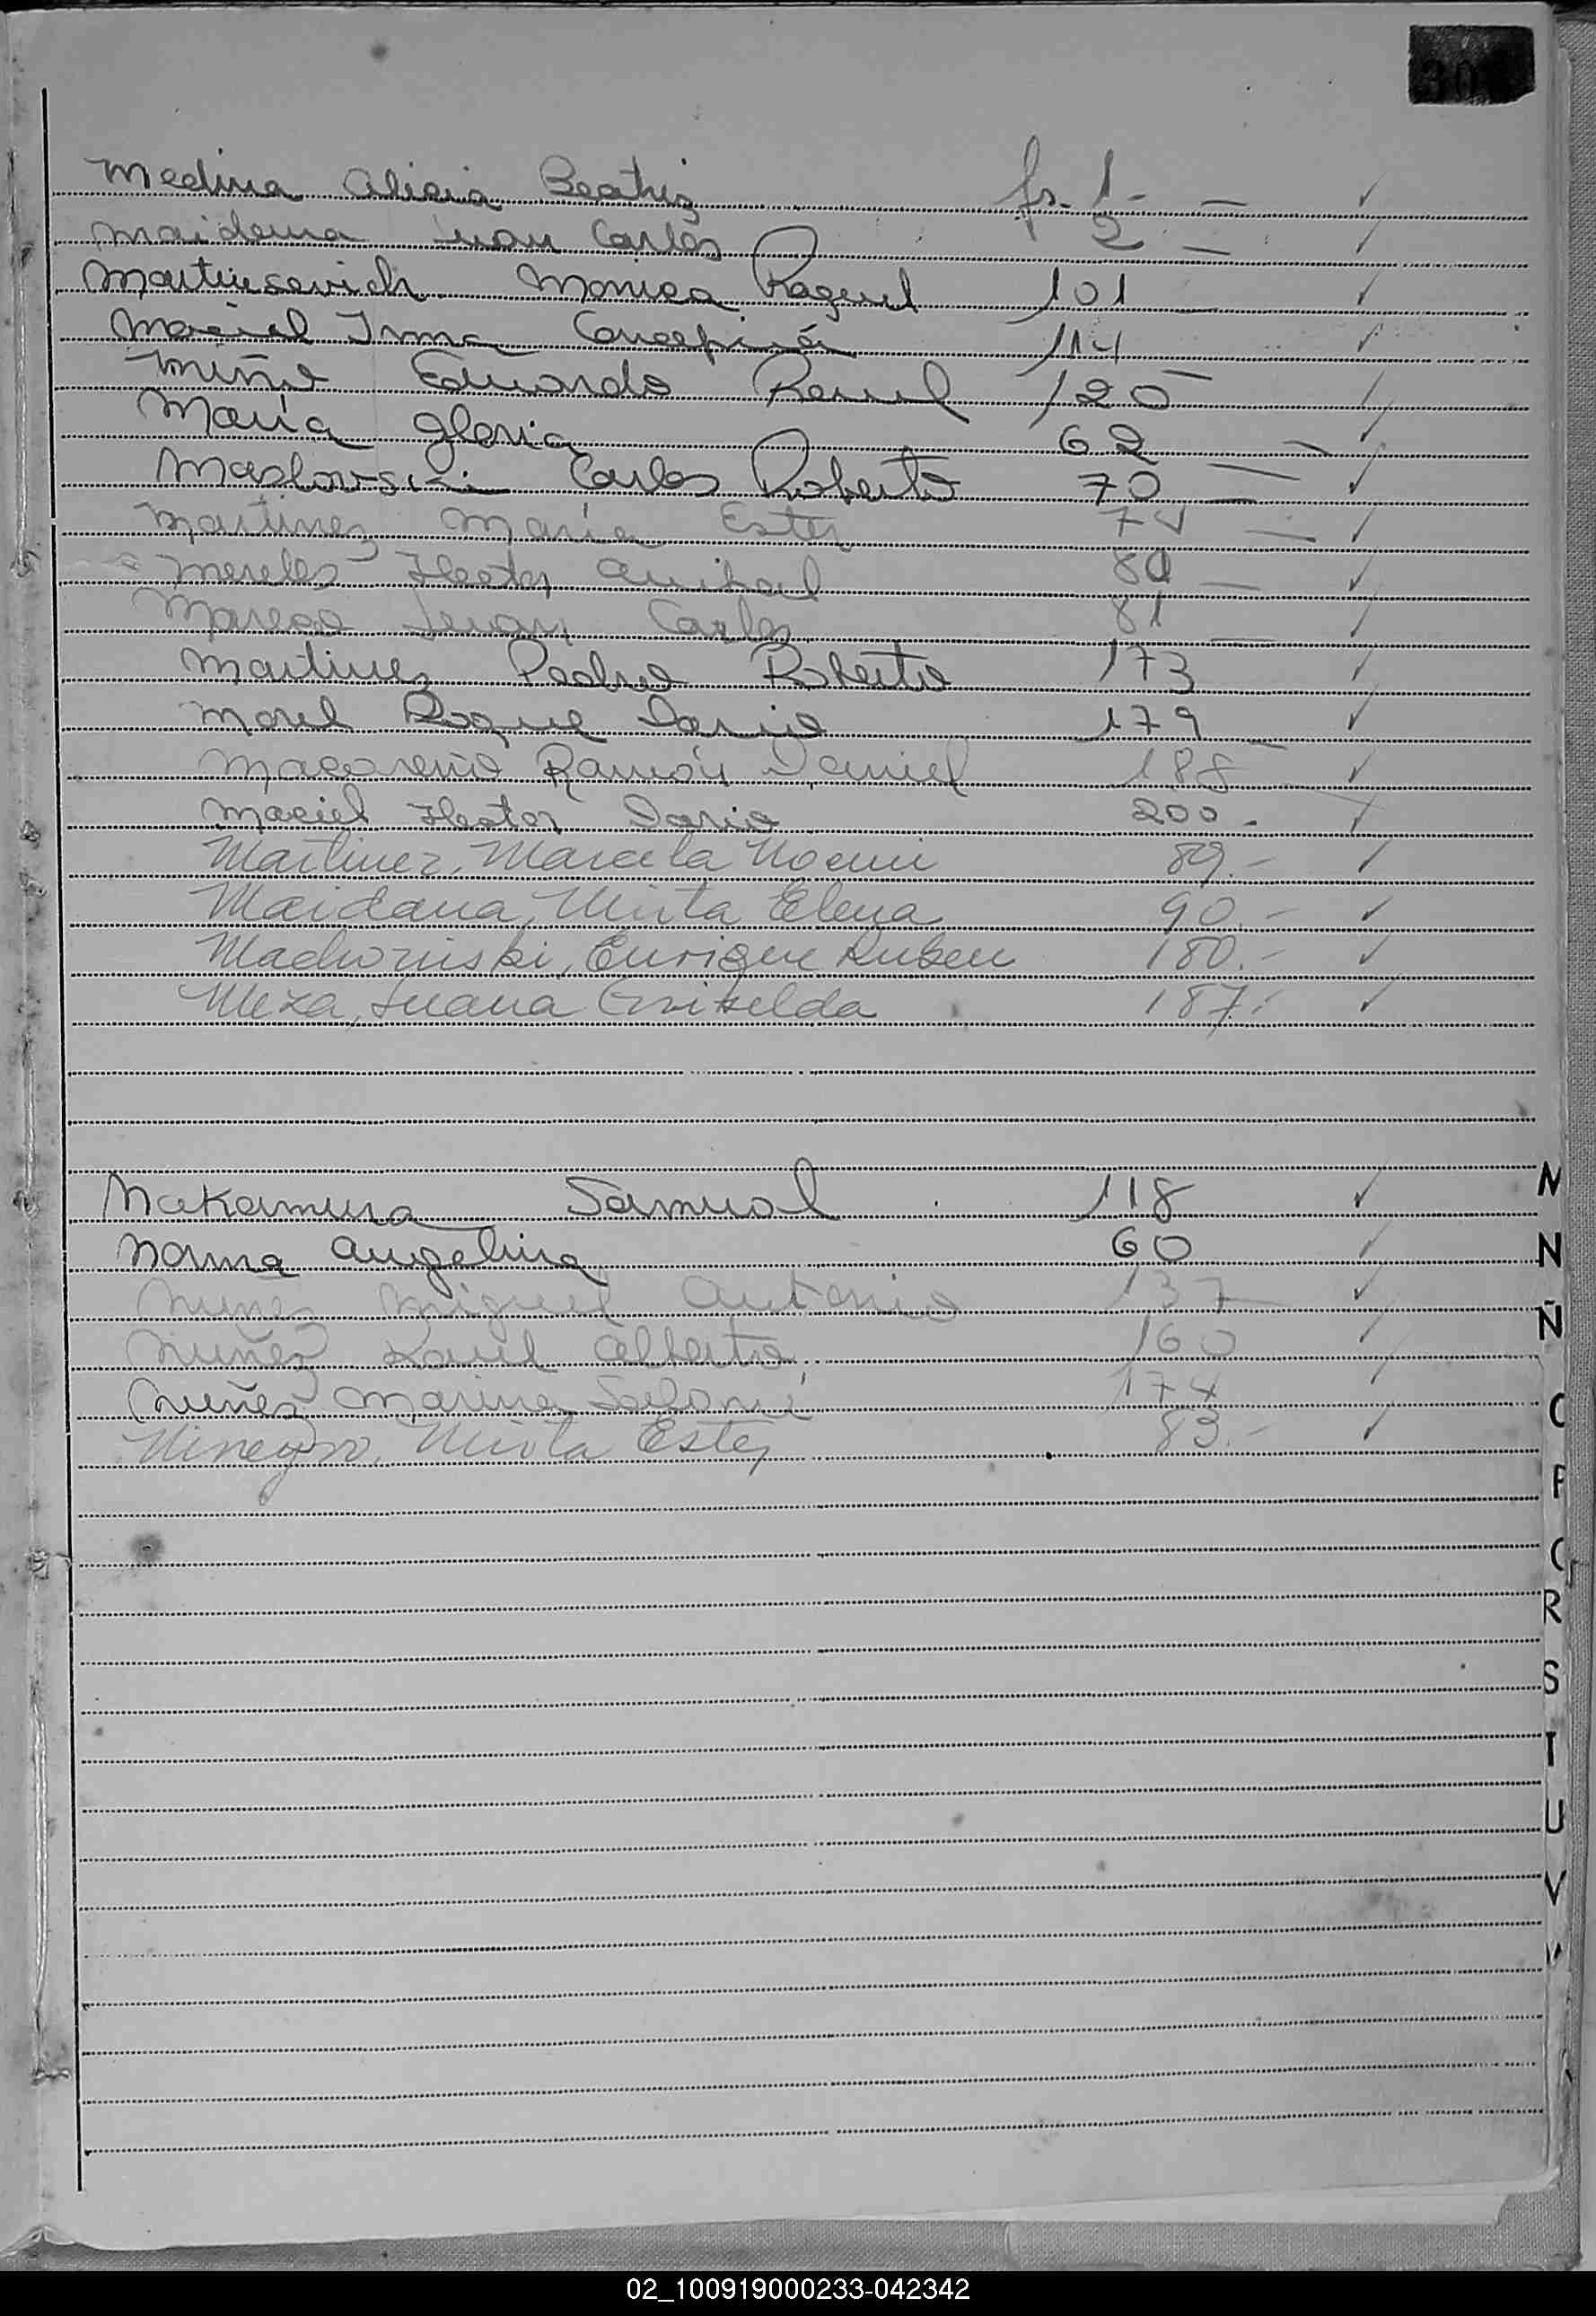 30
Medina Alicia Beatriz fs. 1 - — ✓
Maidana Juan Carlos 2 — ✓
Martinsevich Monica Raquel 101 — ✓
Maciel Irma Concepción 114 ✓
Miño Eduardo Raul 120 — ✓
María Gloria 62 — ✓
Maslowski Carlos Roberto 70 — ✓
Martinez María Ester 74 — ✓
Mereles Hector Anibal 80 — ✓
Juan Carlos 81 — ✓
Martinez Pedro Roberto 173 ✓
Morel Roque Dario 179 ✓
Macoreño Ramón Daniel 188 — ✓
Maciel Hector Dario 200 - ✓
Martinez, Marcela Noemi 89.- ✓
Maidana, Mirta Elena 90.- ✓
Enrique Ruben 180.- ✓
Meza, Juana Griselda 187.- ✓
Nakamura Samuel 118 ✓
Norma Angelina 60 ✓
Nuñez Miguel Antonio 137 — ✓
Nuñez Raul Alberto 160 ✓
Nuñez Marina 174 ✓
Mirta Ester 83.- ✓
M
N
Ñ
O
P
Q
R
S
T
U
V
02_100919000233-042342